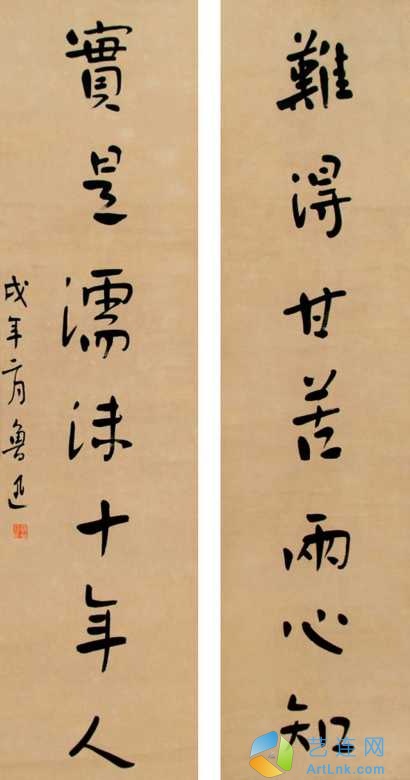 難得甘苦兩心知
實是濡沫十年人
戌年二月魯迅
艺连网
ArtLnk.com